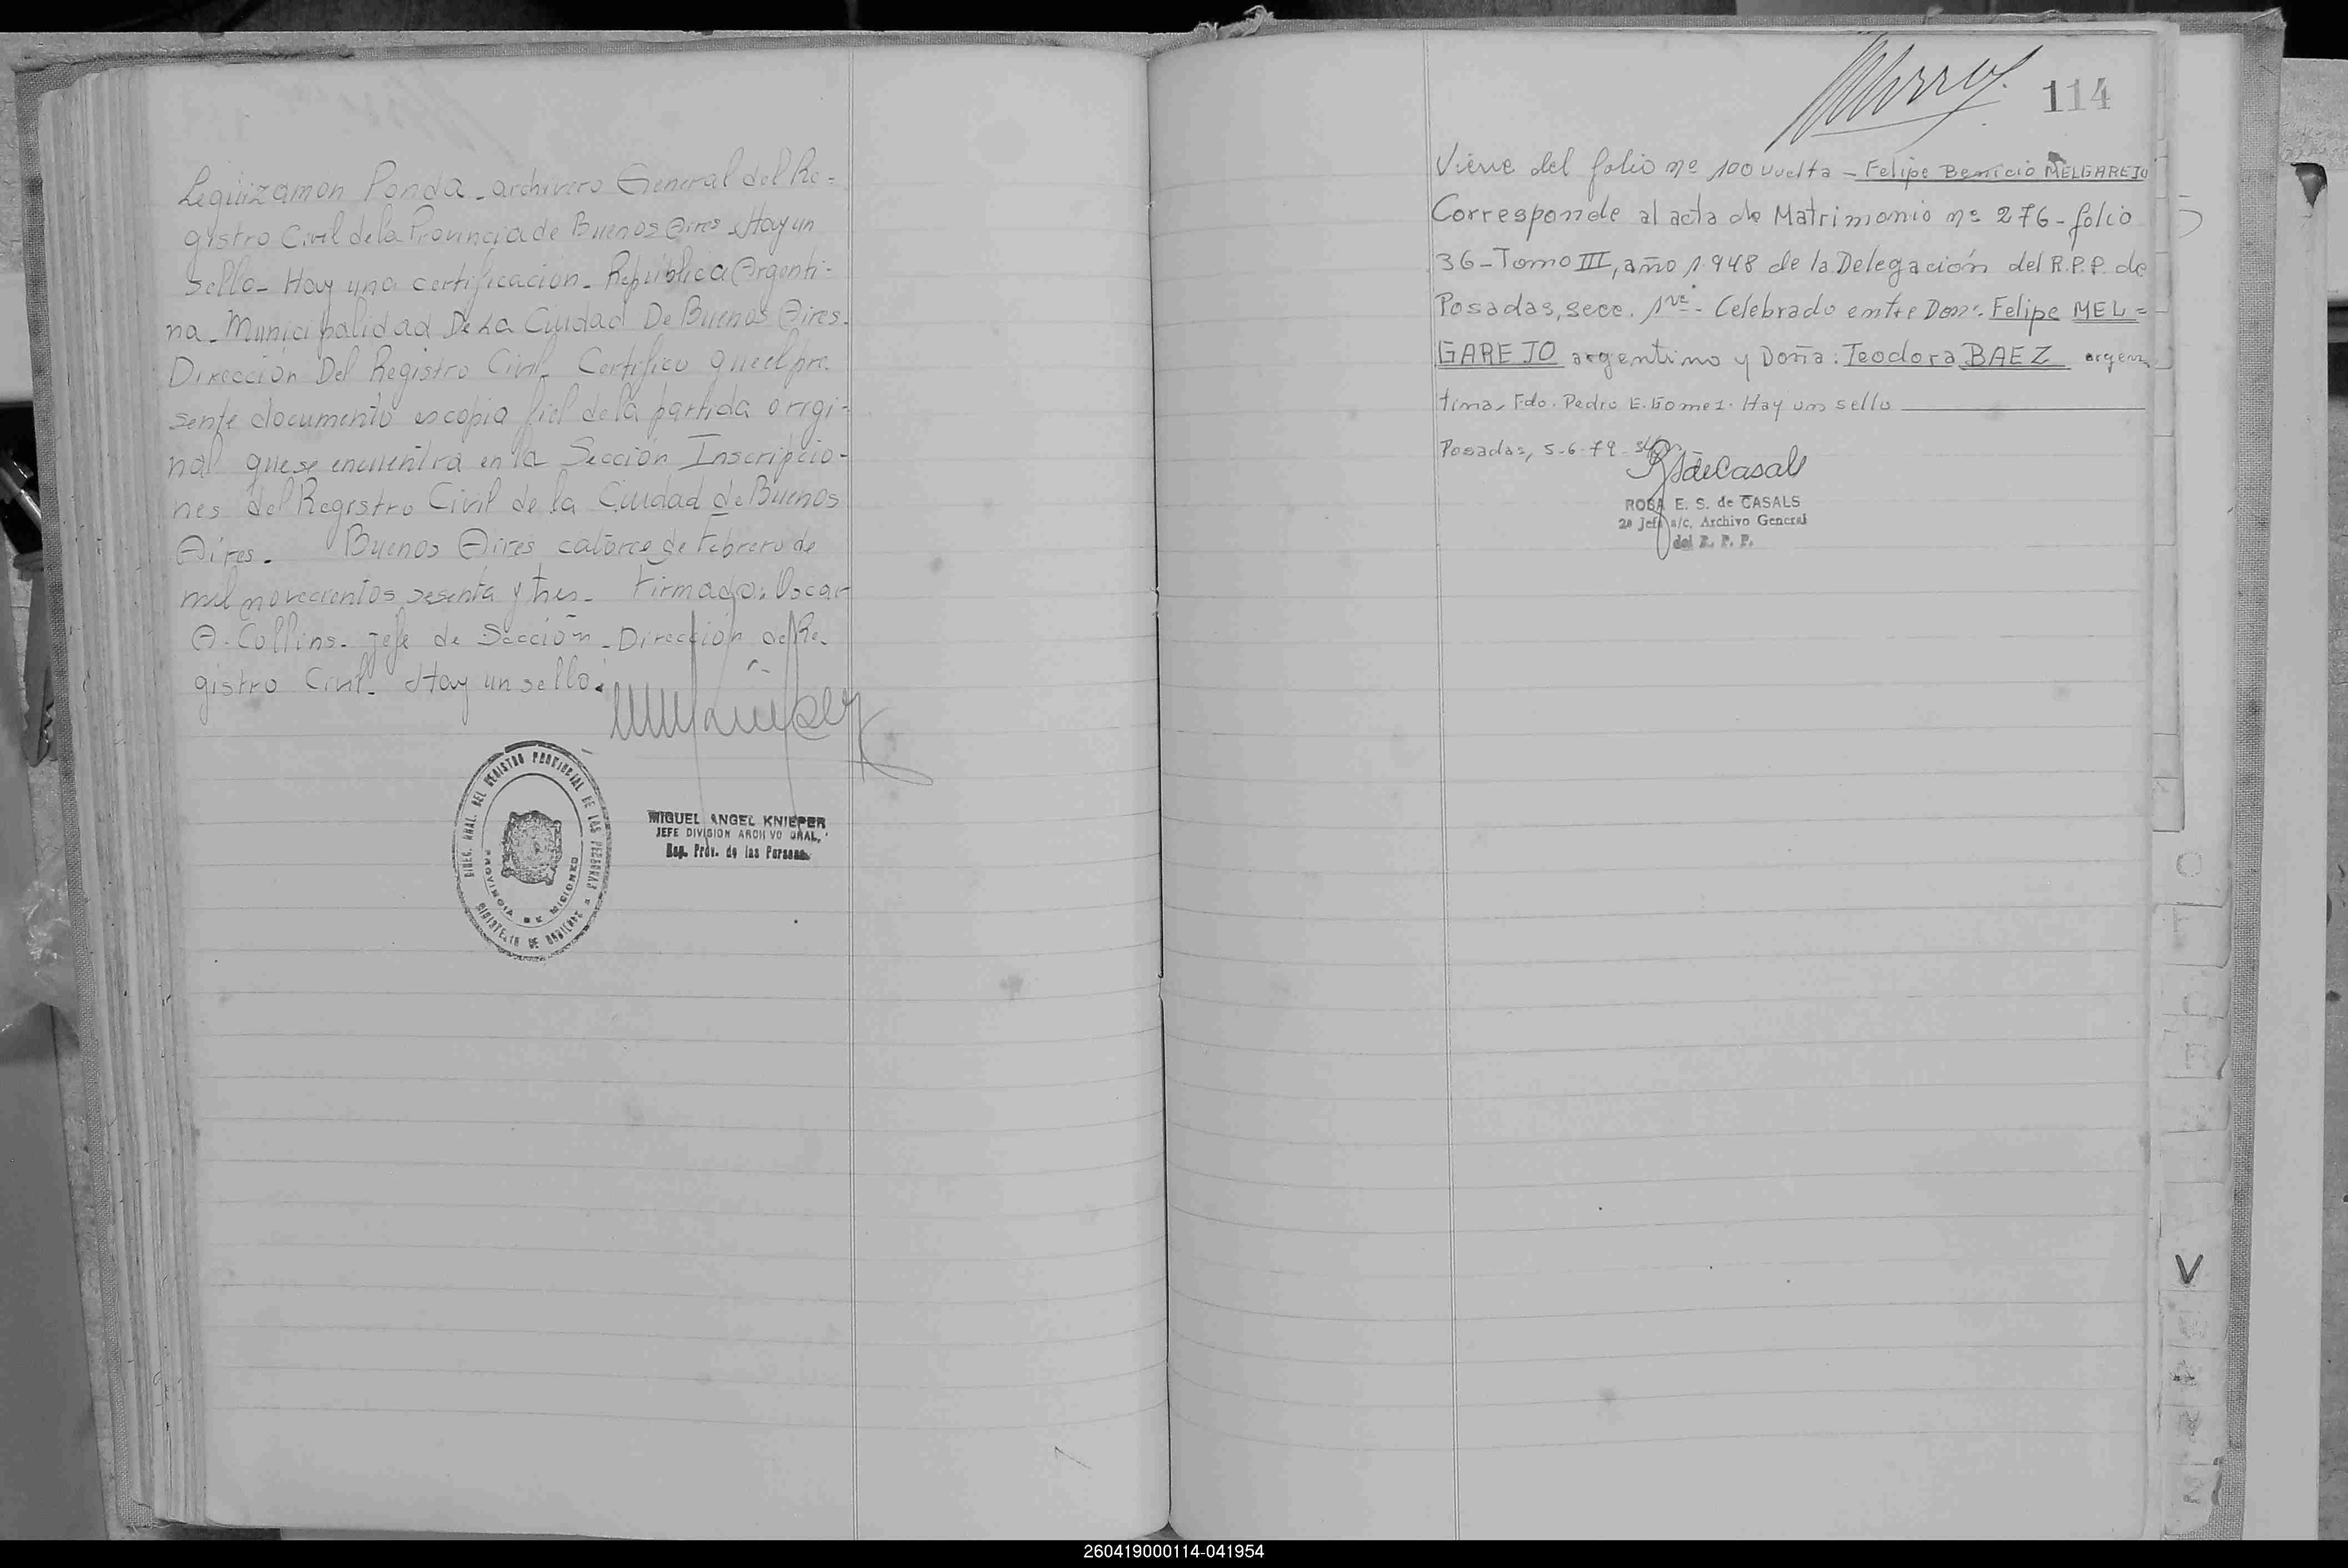 Leguizamon Ponda - archivero General del Re=
gistro Civil de la Provincia de Buenos Aires. Hay un
sello - Hay una certificación - República Argenti-
na - Municipalidad De La Ciudad De Buenos Aires.
Dirección Del Registro Civil - Certifico que el pre-
sente documento es copia fiel de la partida origi-
nal que se encuentra en la Sección Inscripcio-
nes del Registro Civil de la Ciudad de Buenos
Aires - Buenos Aires catorce de Febrero de
mil novecientos sesenta y tres - Firmado: Oscar
A. Collins - jefe de Sección - Dirección del Re-
gistro Civil - Hay un sello.
DIREC. GRAL. DEL REGISTRO PROVINCIAL DE LAS PERSONAS
PROVINCIA DE MISIONES
MINISTERIO DE GOBIERNO
MIGUEL ANGEL KNIEPER
JEFE DIVISION ARCHIVO GRAL.
Reg. Prov. de las Personas
114
Viene del folio nº 100 vuelta - Felipe Benicio MELGAREJO
Corresponde al acta de Matrimonio nº 276 - folio
36 - Tomo III, año 1.948 de la Delegación del R.P.P. de
Posadas, secc. 1ra - Celebrado entre Don: Felipe MEL=
GAREJO argentino y Doña: Teodora BAEZ argen
tina, Fdo. Pedro E. Gomez. Hay un sello
Posadas, 5-6-79
R S de Casals
ROSA E. S. de CASALS
2ª Jefe a/c. Archivo General
del R. P. P.
V
260419000114-041954